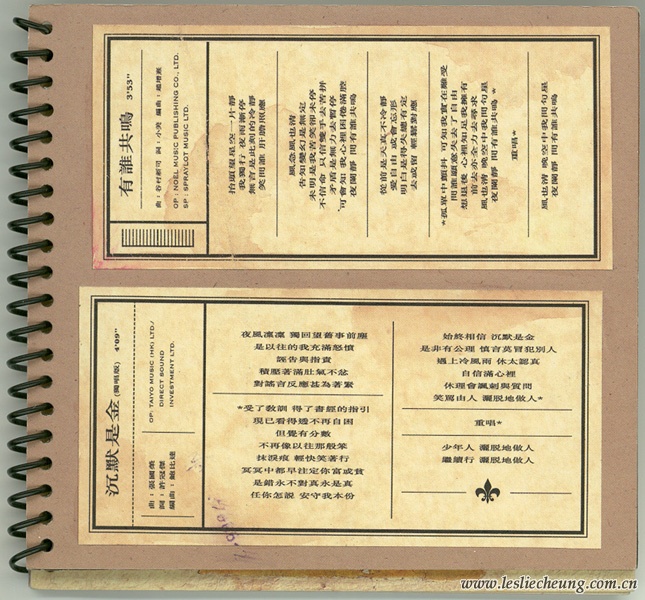 有誰共鳴 3'53"
曲：谷村新司 詞：小美 編曲：趙增熹
OP : NOEL MUSIC PUBLISHING CO., LTD.
SP : SPRAYLOT MUSIC LTD.
抬頭望星空一片靜
我獨行 夜雨漸停
無言是此刻的冷靜
笑問誰 肝膽照應
風急風也清
告知變幻是無定
未明是我苦笑卻未停
不信命 只信雙手去苦拼
矛盾是無力去暫停
可會知我心裡困倦滿腔
夜闌靜 問有誰共鳴
從前是天真不冷靜
愛自由 或會忘形
明白是得失總有定
去或留 輕鬆對應
*孤單中顫抖 可知我實在難受
問誰願意失去了自由
想退後 心裡知足我擁有
前去亦全力去尋求
風也清 晚空中我問句星
夜闌靜 問有誰共鳴
重唱*
風也清 晚空中我問句星
夜闌靜 問有誰共鳴
沉默是金 (獨唱版) 4'09"
OP: TAIYO MUSIC (HK) LTD/
DIRECT SOUND
INVESTMENT LTD.
曲：張國榮
詞：許冠傑
編曲：鮑比達
夜風凜凜 獨回望舊事前塵
是以往的我充滿怒憤
誣告與指責
積壓著滿肚氣不忿
對謠言反應甚為著緊
*受了教訓 得了書經的指引
現已看得透不再自困
但覺有分數
不再像以往那般笨
抹淚痕 輕快笑著行
冥冥中都早注定你富或貧
是錯永不對真永是真
任你怎說 安守我本份
始終相信 沉默是金
是非有公理 慎言莫冒犯別人
遇上冷風雨 休太認真
自信滿心裡
休理會諷刺與質問
笑罵由人 灑脫地做人*
重唱*
少年人 灑脫地做人
繼續行 灑脫地做人
www.lesliecheung.com.cn